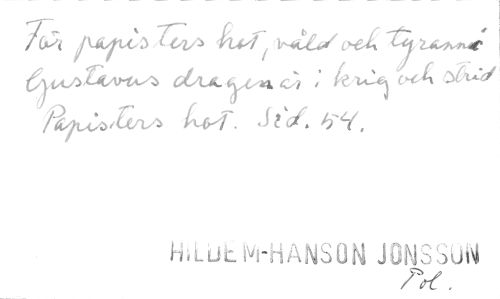 För papisters hot, våld och tyranni
Gustavus dragen är i krig och strid
Papisters hot. Sid. 54.
HILDEM-HANSON JONSSON
Pol.